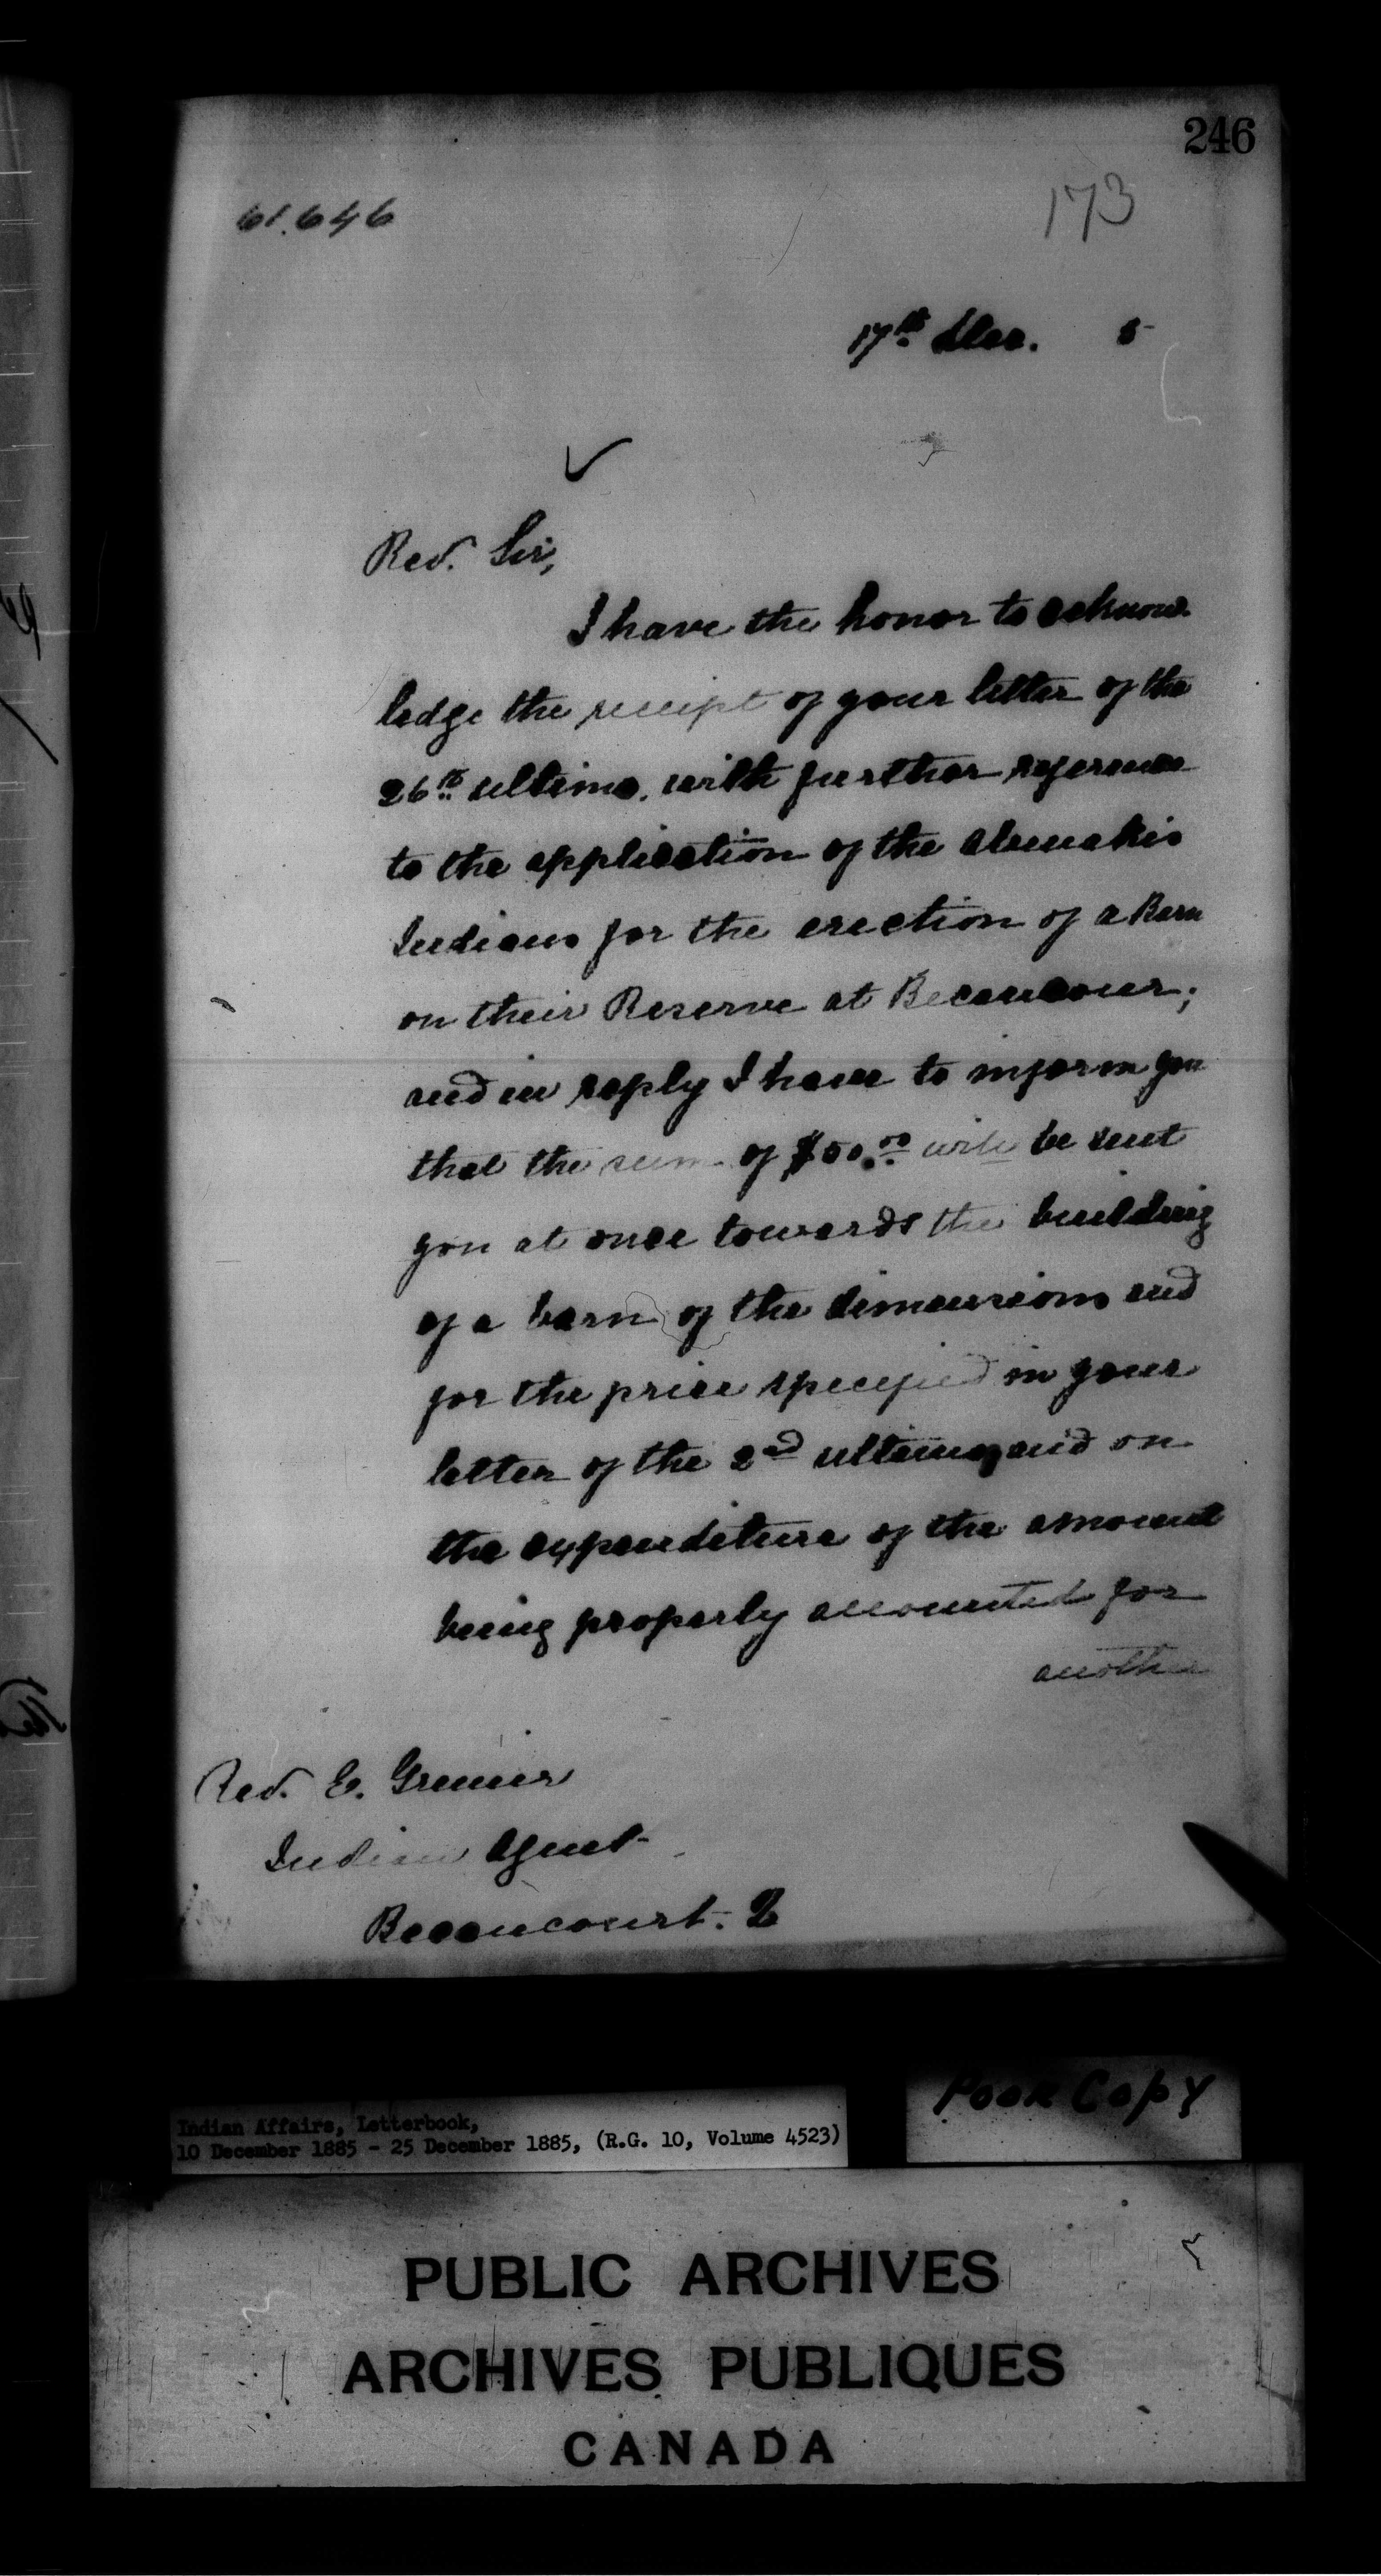 246
61.646
173
17th Dec. 5
Rev. Sir,
I have the honor to acknow-
ledge the receipt of your letter of the
26th ultimo, with further reference
to the application of the Abenakis
Indians for the erection of a Barn
on their Reserve at Becancour;
and in reply I have to inform you
that the sum of $50.00 will be sent
you at once towards the building
of a barn of the dimensions and
for the price specified in your
letter of the 2nd ultimo, and on
the expenditure of the amount
being properly accounted for
another
Rev. E. Grenier
Indian Agent
Becancourt. Q
Poor Copy
Indian Affairs, Letterbook,
10 December 1885 - 25 December 1885, (R.G. 10, Volume 4523)
PUBLIC ARCHIVES
ARCHIVES PUBLIQUES
CANADA